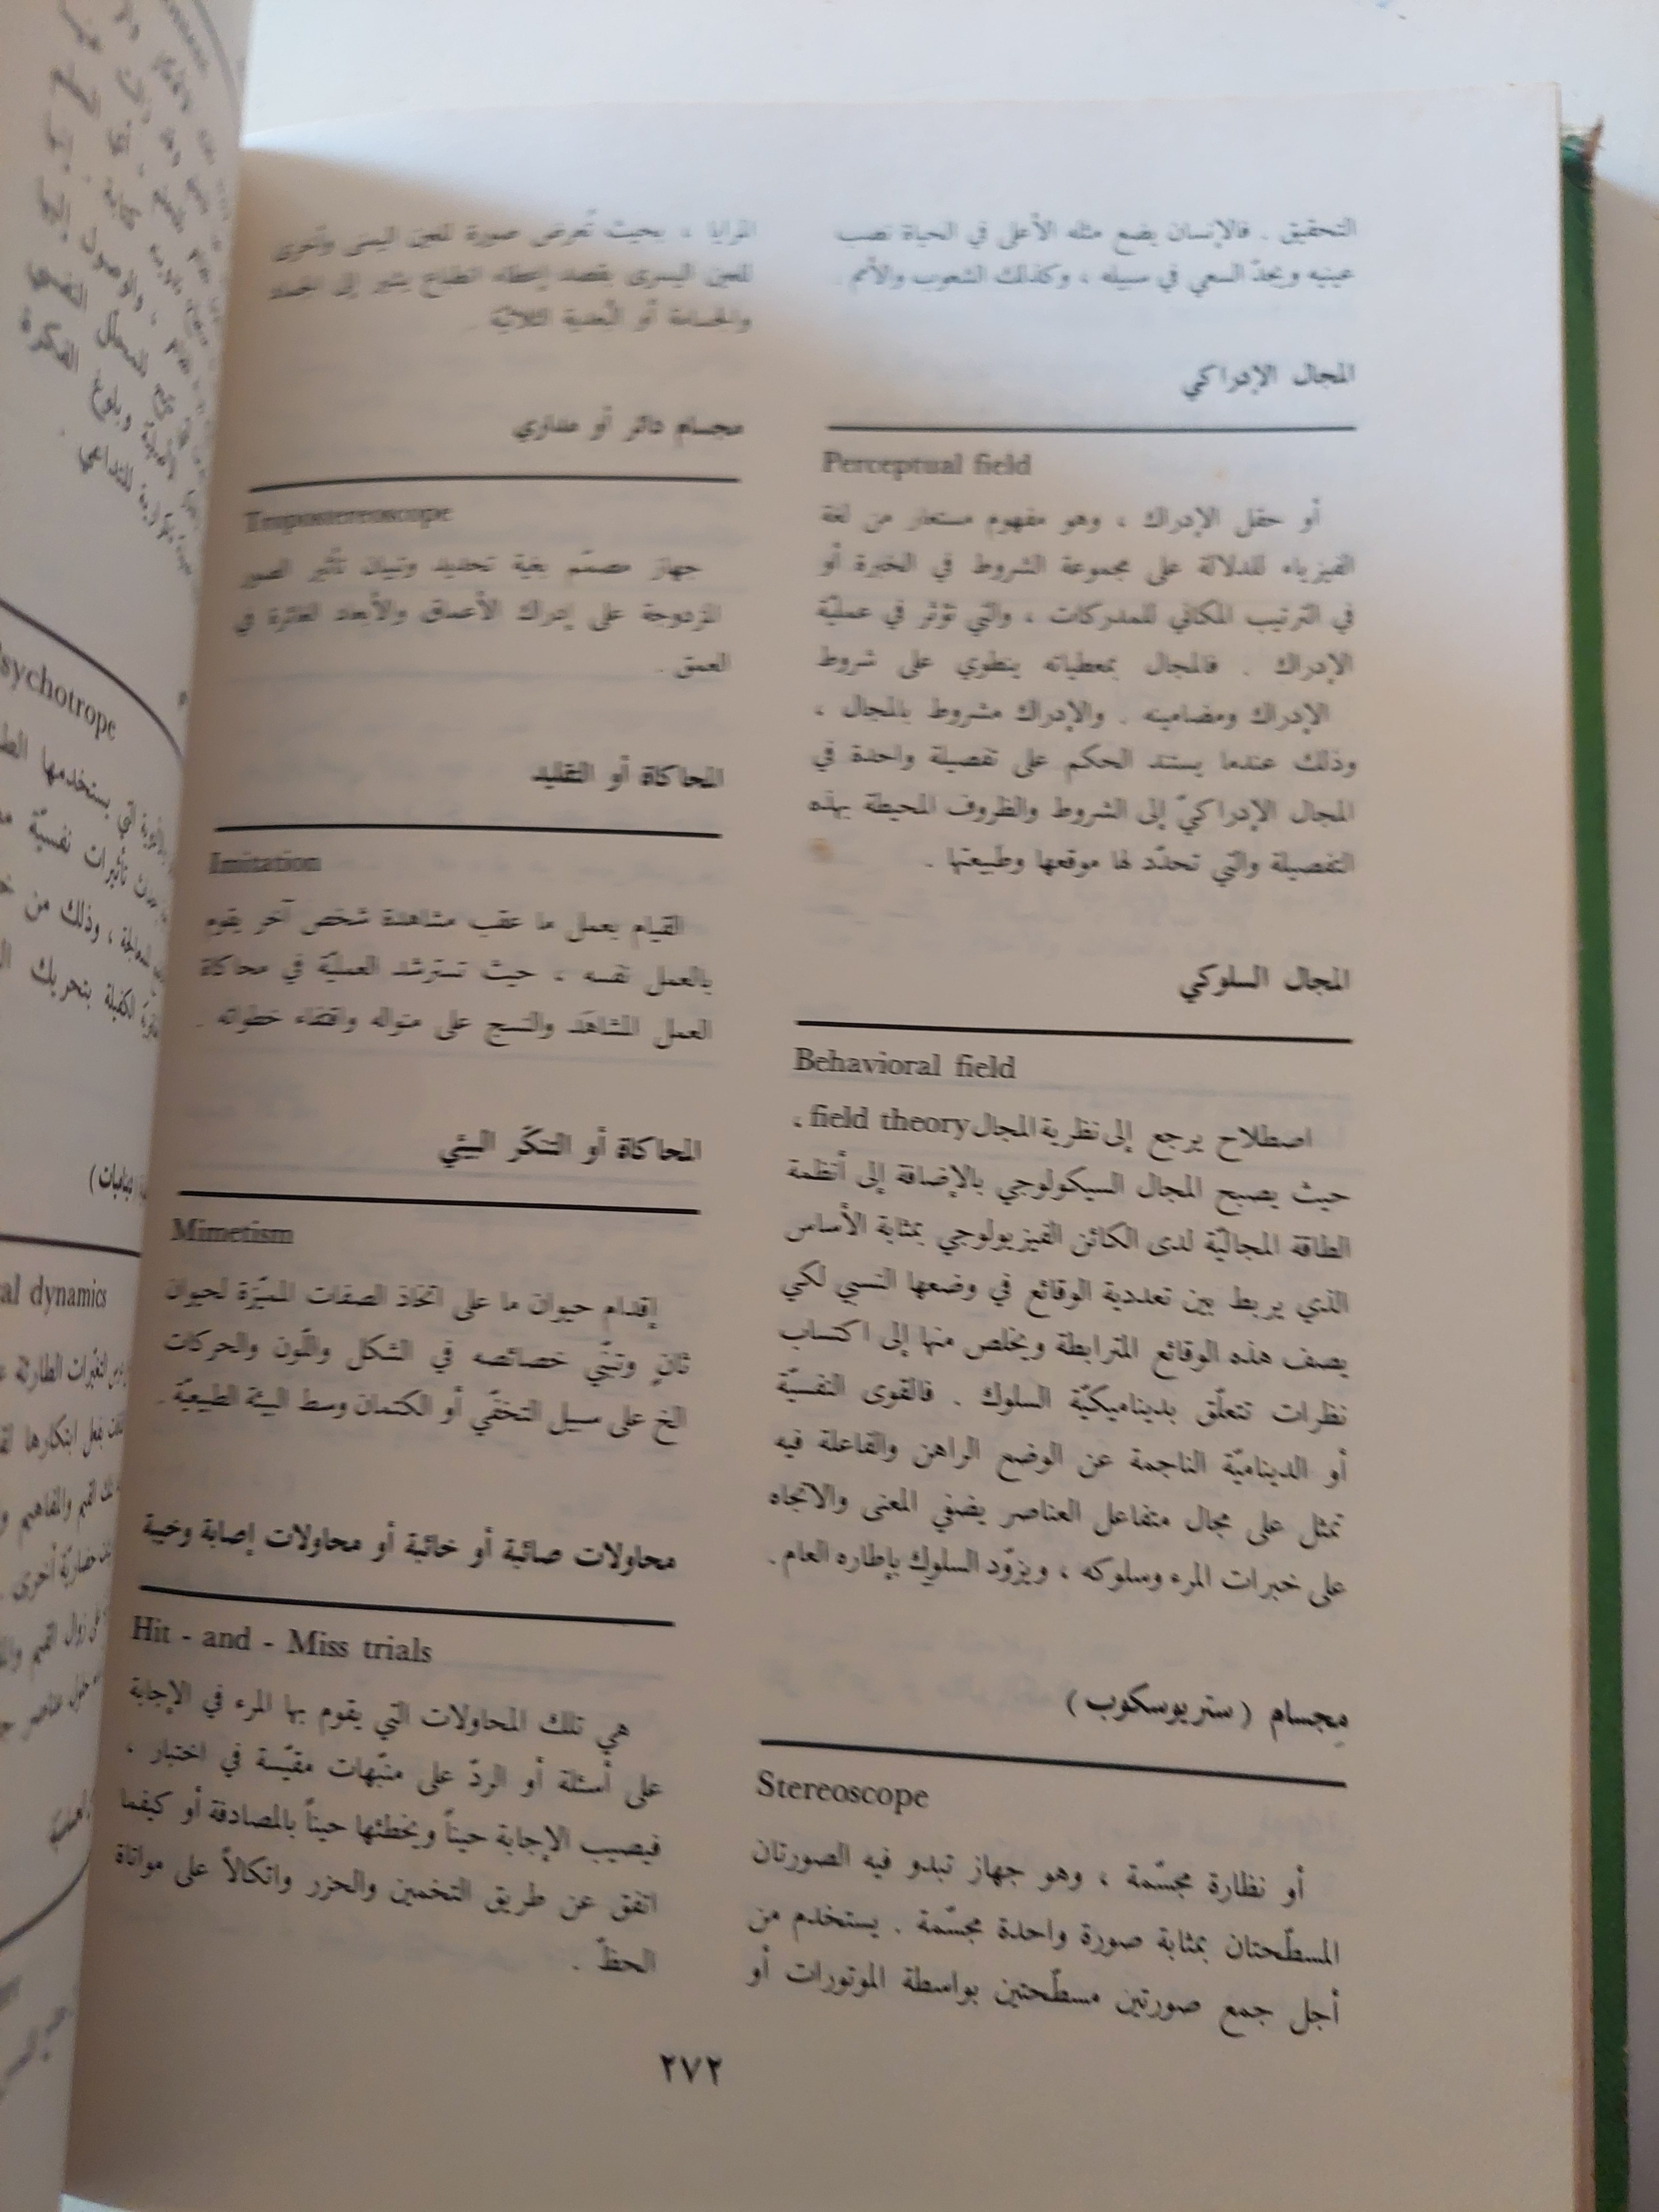 التحقيق . فالإنسان يضع مثله الأعلى في الحياة نصب
عينيه ويجدّ السعي في سبيله ، وكذلك الشعوب والأمم .
المجال الإدراكي
Perceptual field
أو حقل الإدراك ، وهو مفهوم مستعار من لغة
الفيزياء للدلالة على مجموعة الشروط في الخبرة أو
في الترتيب المكاني للمدركات ، والتي تؤثر في عمليّة
الإدراك . فالمجال بمعطياته ينطوي على شروط
الإدراك ومضامينه . والإدراك مشروط بالمجال ،
وذلك عندما يستند الحكم على تفصيلة واحدة في
المجال الإدراكيّ إلى الشروط والظروف المحيطة بهذه
التفصيلة والتي تحدّد لها موقعها وطبيعتها .
المجال السلوكي
Behavioral field
اصطلاح يرجع إلى نظرية المجال field theory ،
حيث يصبح المجال السيكولوجي بالإضافة إلى أنظمة
الطاقة المجاليّة لدى الكائن الفيزيولوجي بمثابة الأساس
الذي يربط بين تعددية الوقائع في وضعها النسبي لكي
يصف هذه الوقائع المترابطة ويخلص منها إلى اكتساب
نظرات تتعلّق بديناميكيّة السلوك . فالقوى النفسيّة
أو الديناميّة الناجمة عن الوضع الراهن والفاعلة فيه
تمثل على مجال متفاعل العناصر يضفي المعنى والاتجاه
على خبرات المرء وسلوكه ، ويزوّد السلوك بإطاره العام .
مِجسام ( ستريوسكوب )
Stereoscope
أو نظارة مجسّمة ، وهو جهاز تبدو فيه الصورتان
المسطّحتان بمثابة صورة واحدة مجسّمة . يستخدم من
أجل جمع صورتين مسطّحتين بواسطة الموتورات أو
المرايا ، بحيث تُعرض صورة للعين اليمنى وأخرى
للعين اليسرى بقصد إعطاء انطباع يشير إلى
والجسامة أو البُعدية الثلاثيّة .
مجسام دائر أو مداري
Tropostereoscope
جهاز مصمّم بغية تحديد وتبيان تأثير الصور
المزدوجة على إدراك الأعماق والأبعاد الغائرة في
العمق .
المحاكاة أو التقليد
Imitation
القيام بعمل ما عقب مشاهدة شخص آخر يقوم
بالعمل نفسه ، حيث تسترشد العمليّة في محاكاة
العمل المشاهَد والنسج على منواله واقتفاء خطواته .
المحاكاة أو التنكّر البيئي
Mimetism
إقدام حيوان ما على اتخاذ الصفات المميّزة لحيوان
ثانٍ وتبنّي خصائصه في الشكل واللّون والحركات
الخ على سبيل التخفّي أو الكتمان وسط البيئة الطبيعيّة .
محاولات صائبة أو خائبة أو محاولات إصابة وخيبة
Hit - and - Miss trials
هي تلك المحاولات التي يقوم بها المرء في الإجابة
على أسئلة أو الردّ على منبّهات مقيّسة في اختبار ،
فيصيب الإجابة حيناً ويخطئها حيناً بالمصادفة أو كيفما
اتفق عن طريق التخمين والحزر واتكالاً على مواتاة
الحظّ .
٢٧٢